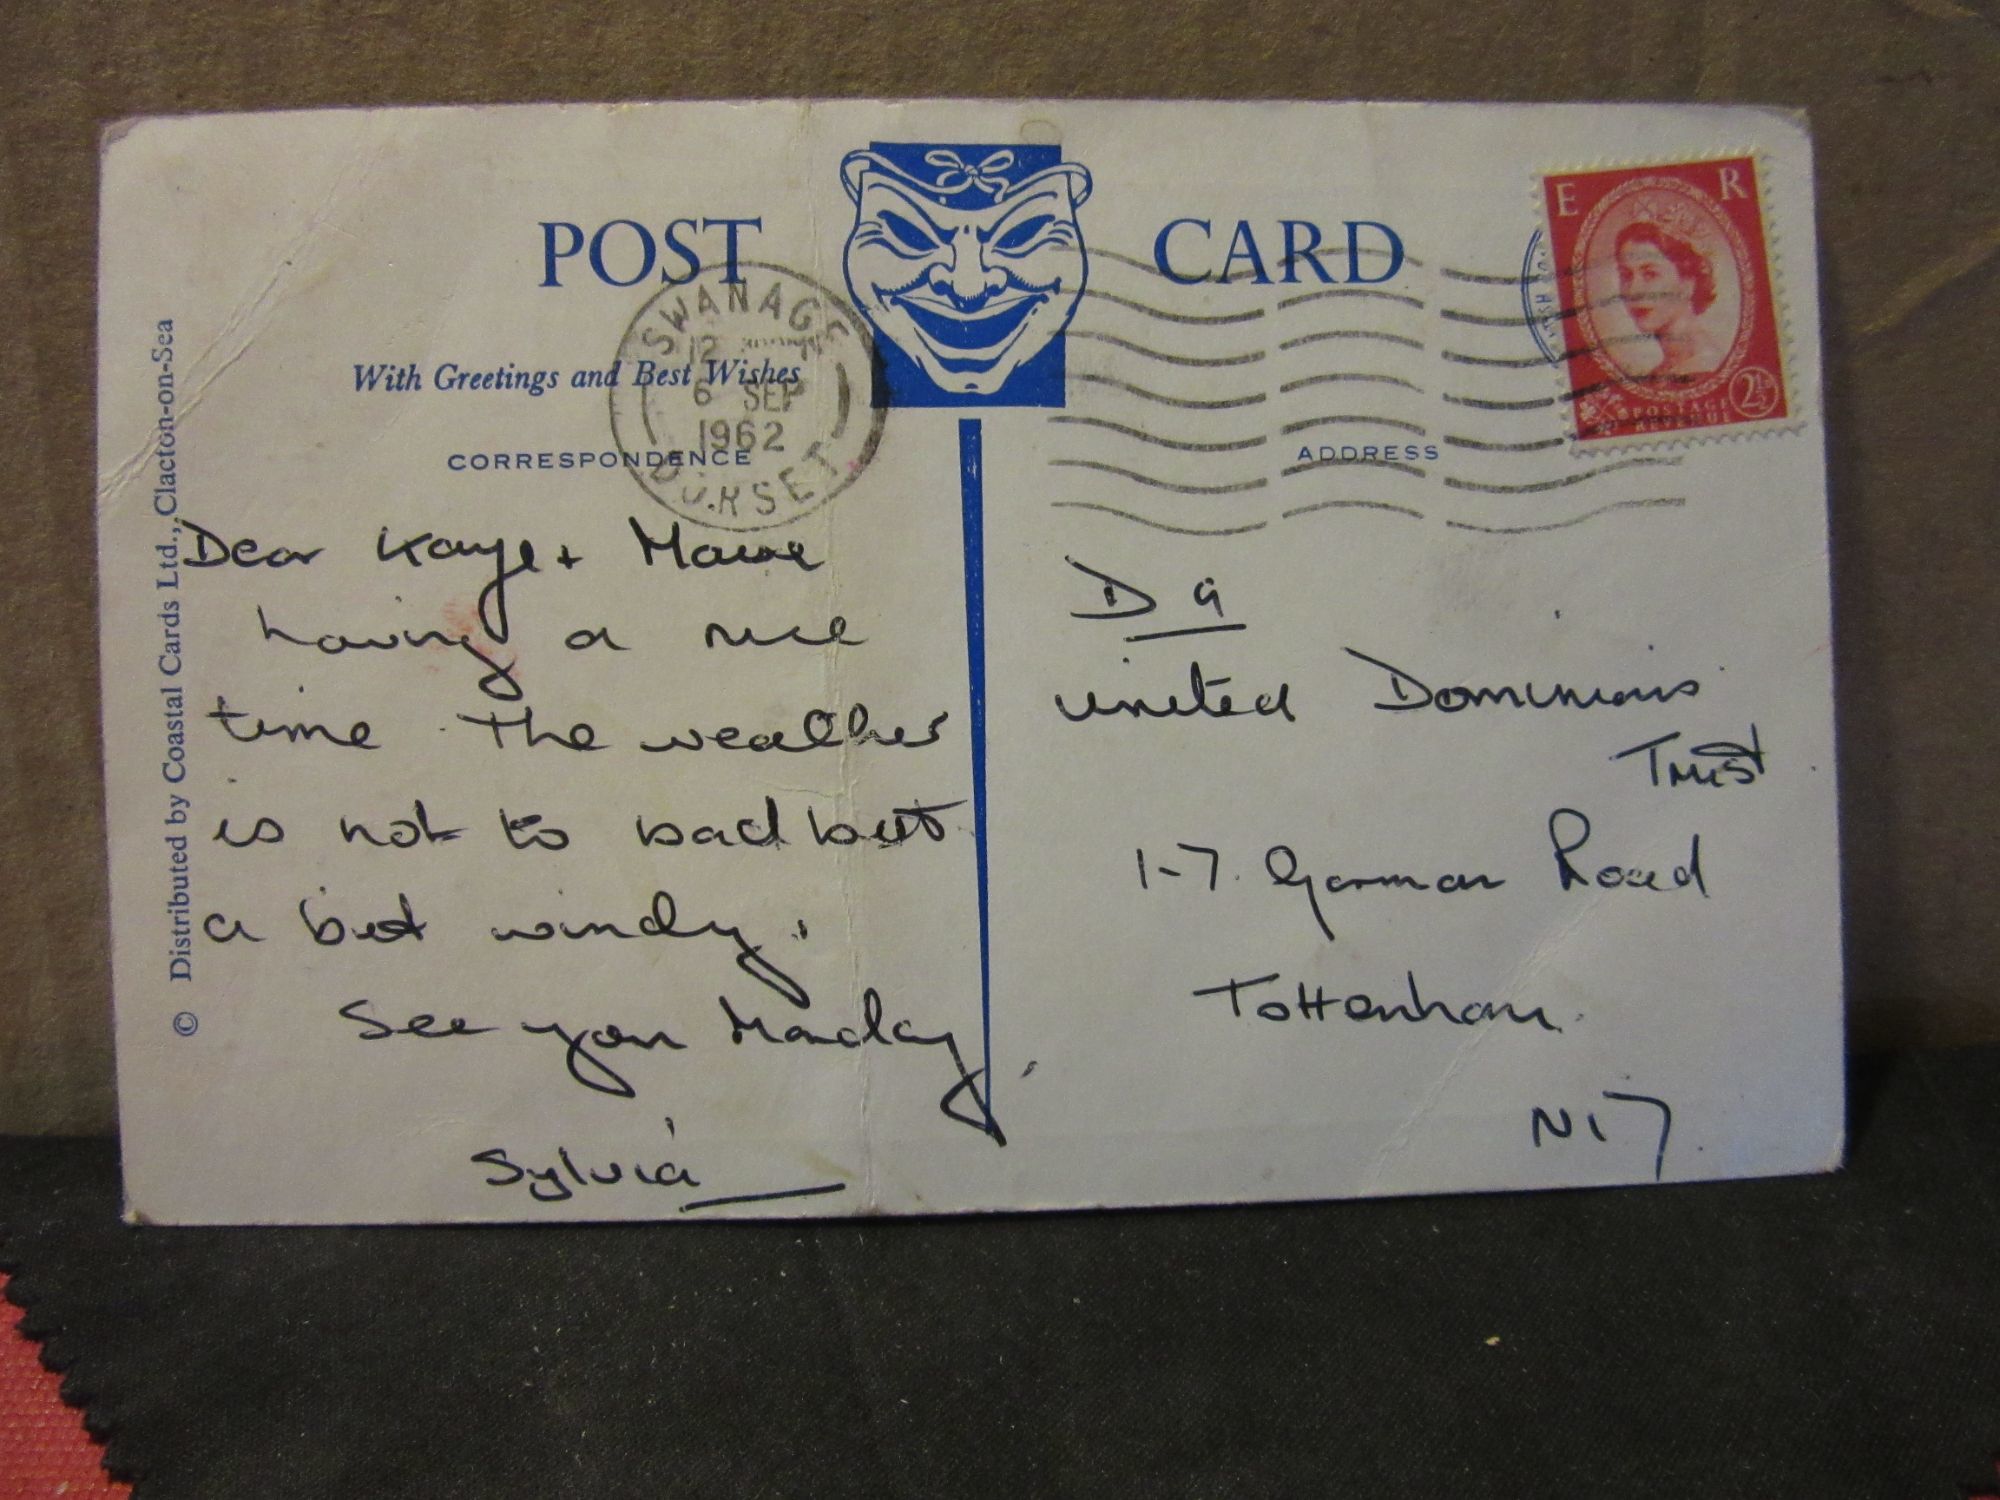 POST CARD
With Greetings and Best Wishes
CORRESPONDENCE
ADDRESS
SWANAGE
12
6 SEP
1962
DORSET
E R
POSTAGE
REVENUE
2½
© Distributed by Coastal Cards Ltd., Clacton-on-Sea
Dear Kaye +
having a nice
time. The weather
is not to bad but
a bit windy.
See you Monday,
Sylvia
D 9
United Dominions
Trust
1-7. Gorman Road
Tottenham.
N17